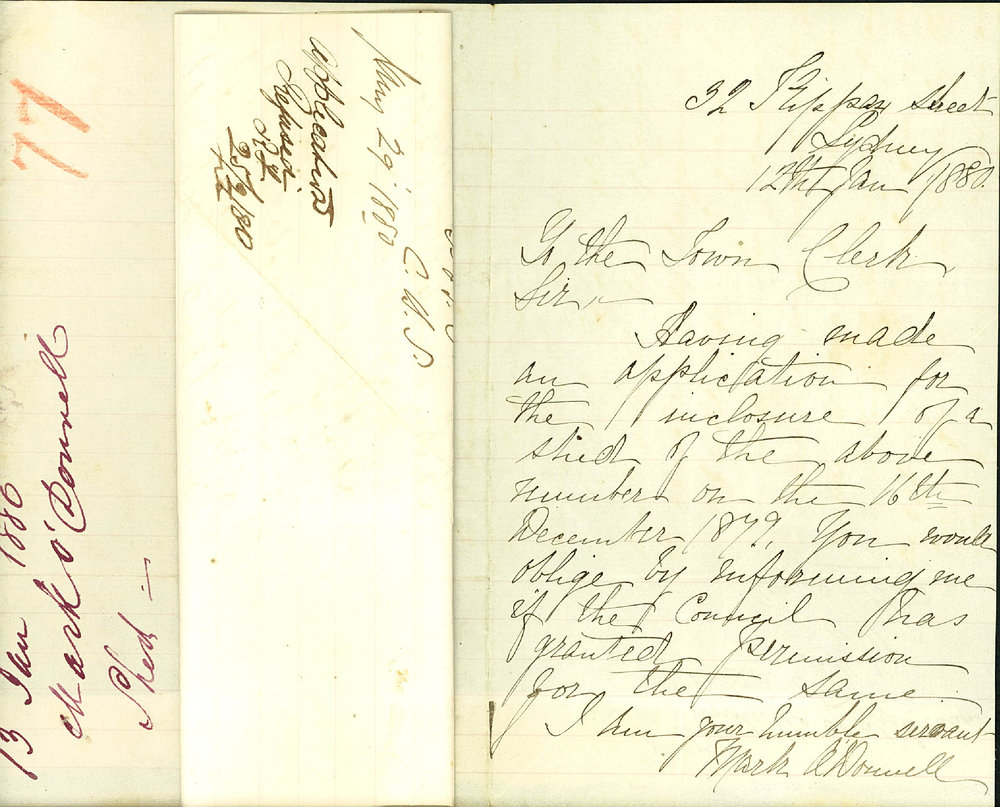 77
13 Jan 1880
Mark O'Donnell
Shed —
29 1880
C. U. S.
Application
Refused
25/2/80
32 Flippax street
Sydney
12th Jan 1880.
To the Town Clerk,
Sir,
Having made
an application for
the inclosure of a
shed of the above
number on the 16th
December 1879, You would
oblige by informing me
if the Council has
granted permission
for the same
I am your humble servant
Mark O'Donnell